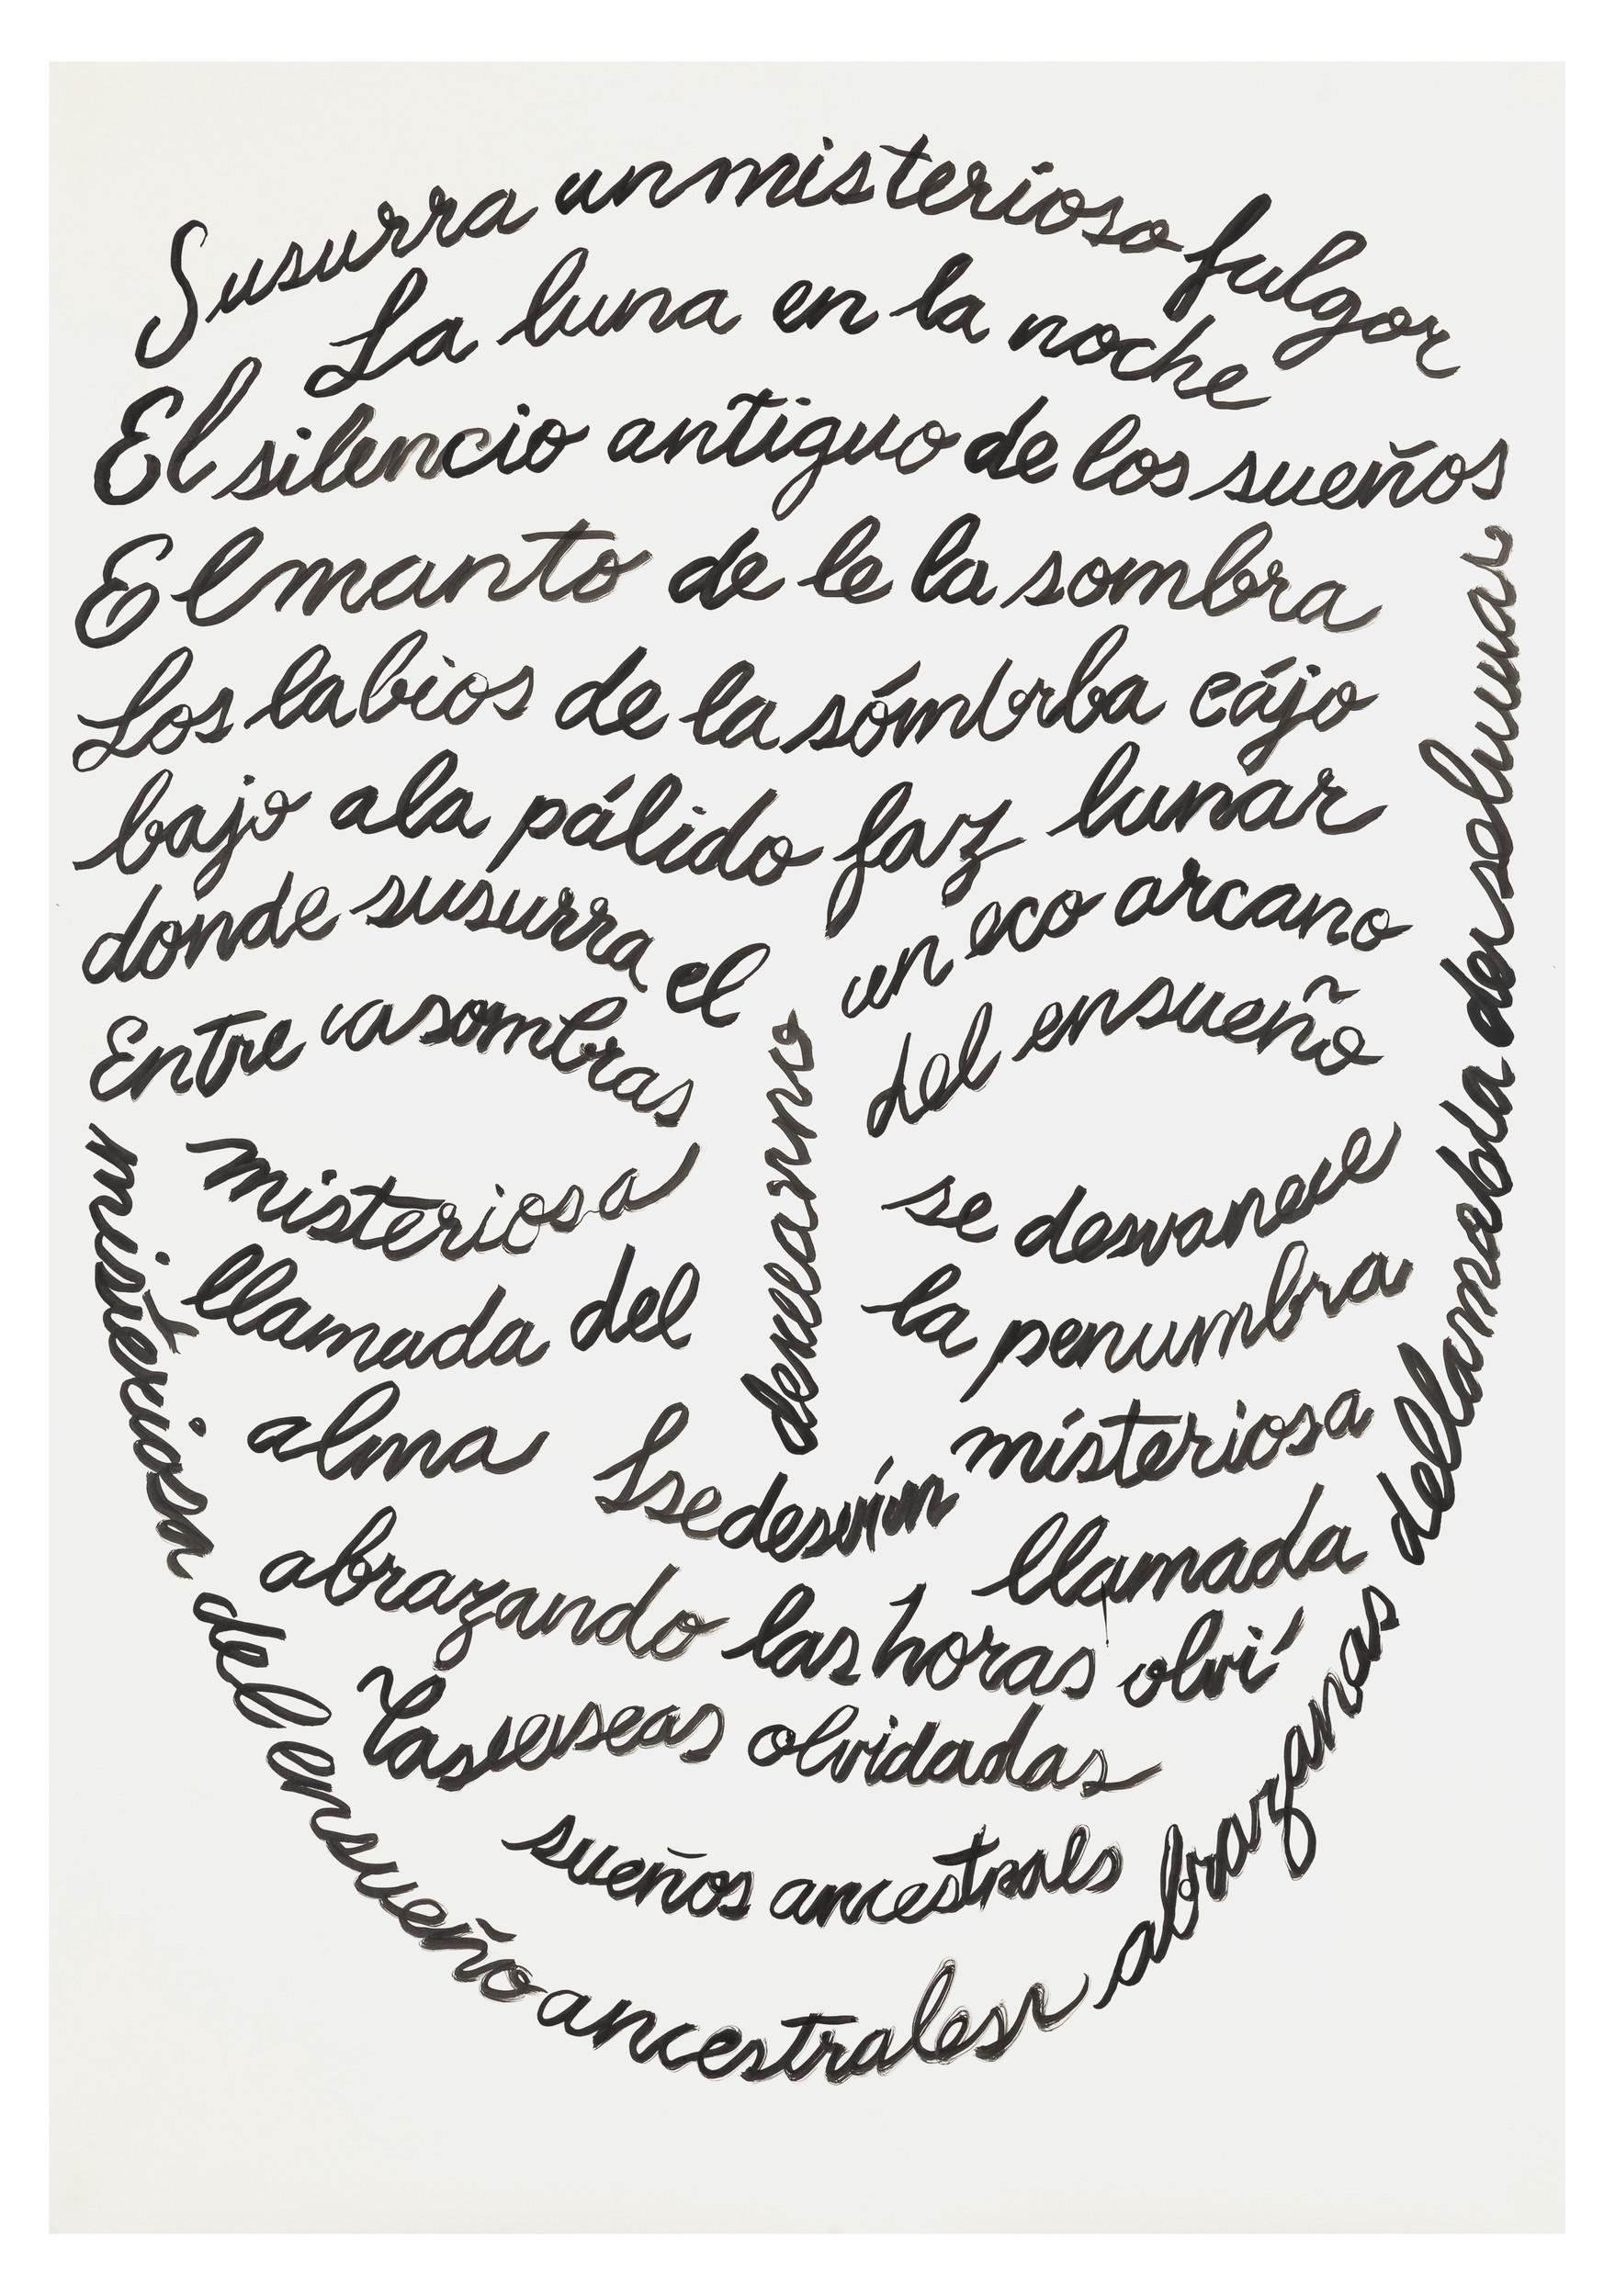 Susurra un misterioso fulgor
La luna en la noche
El silencio antiguo de los sueños
El manto de le la sombra
Los labios de la sómbrba cájo
bajo ala pálido faz lunar
donde susurra el
un eco arcano
Entre la sombras
del ensueño
misteriosa
se desvanece
llamada del
la penumbra
alma
misteriosa
llamada
abrazando las horas olvi
olvidadas
sueños ancestrals
del ensueño ancestrales
abrazanas